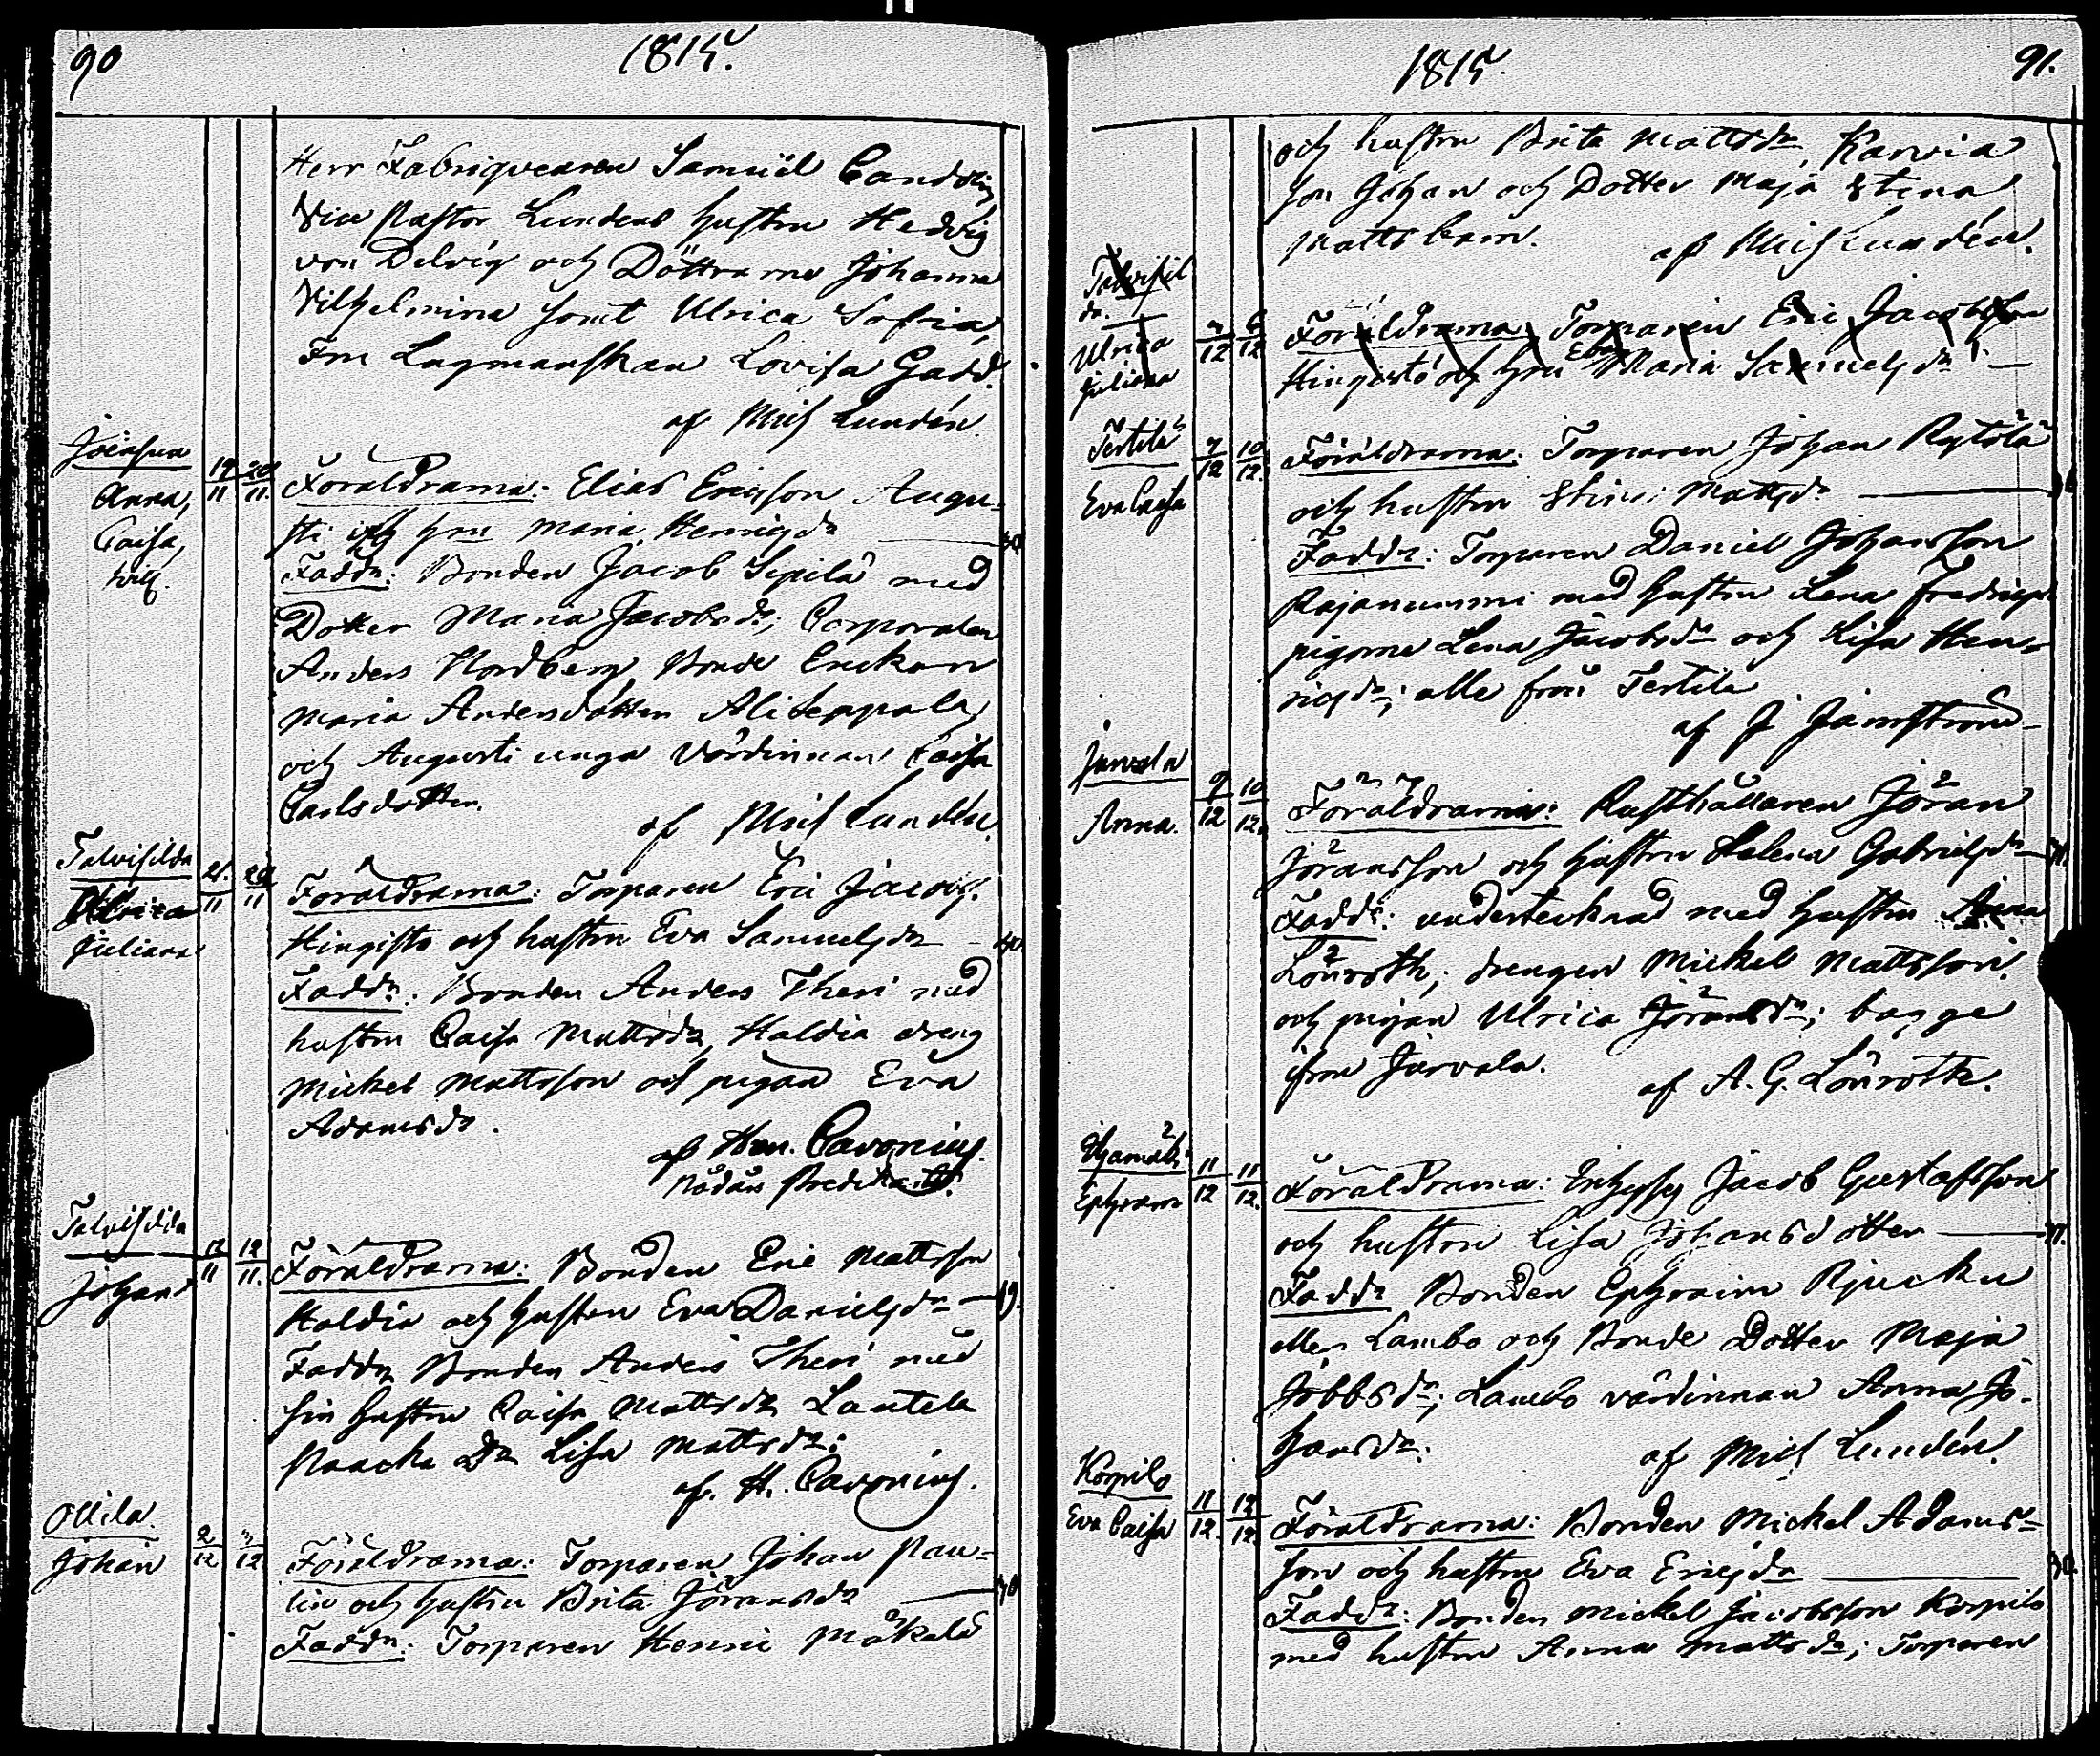 90
1815.
Herr Fabriqvearen Samuël Candolin,
Vice Pastor Lundens hustru Hedvig
von Delvig och Döttrarne Johanna
Vilhelmina samt Ulrica Sofia,
Fru Lagmanskan Lovisa Gadd.
af Mich Lundén.
Anna,
Caisa,
19/11 20/11.
Föräldrarna: Elias Ericsson Augu-
sti och hru Maria Henricsdr
Faddr: Bonden Jacob Sipilä med
Dotter Maria Jacobsdr; Corporalen
Anders Nordberg, Bonde Enckan
Maria Andersdotter Aliseppälä,
och Augusti unga Värdinnan Caisa
Carlsdotter.
af Mich Lundén.
Talvisilda
Ulrica
Juliana
21./11 20/11
Föräldrarna: Torparen Eric Jacobs.
Hingisto och hustru Eva Samuelsdr
Faddr: Bonden Anders Theri med
hustru Caisa Mattsdr, Haldia dreng
Mickel Mattsson och pigan Eva
Adamsdr.
af Hen. Cavonius.
Nådårs Predikant.
Talvisilda
Johan
12/11 12/11.
Föräldrarna: Bonden Eric Mattsson
Haldia och hustru Eva Danielsdr 19.
Faddr Bonden Anders Theri med
sin hustru Caisa Mattsdr Lautela
Paacka Dr Lisa Mattsdr:
af. H. Cavonius.
Ollila
Johan
2/12 3/12
Föräldrarna: Torparen Johan Pau-
lin och hustru Brita Jöransdr 30
Faddr: Torparen Henric Mäkelä
1815.
91.
och hustru Brita Mattsdr, Karvia
son Johan och Dotter Maja Stina
Mattsbarn.
af Mich Lundén.
Talvisil
da.
Ulrica
Juliana
Föräldrarna, Torparen Eric Jacobsson
Hingisto och hru Eva Maria Samuelsdr
Tertilä
Eva Caisa
9/12 10/12.
Föräldrarna: Torparen Johan Rytölä
och hustru Stina Mattsdr
Faddr: Torparen Daniel Johansson
Rajanummi med hustru Lena Fredricsd.
pigorne Lena Jacobsdr och Lisa Hen-
ricsdr; alla från Tertilä
af J Jarnström
Jarvala
Anna.
9/12 10/12.
Föräldrarna: Rusthållaren Jöran
Jöransson och hustru Helena Gabrielsdr
Faddr: undertecknad med hustru Anna
Lönroth; drengen Mickel Mattsson
och pigan Ulrica Jöransdr; bägge
ifrån Jarvala.
af A. G. Lönroth.
Ephraim
11/12 11/12.
Föräldrarna: Inhyses Jacob Gustafsson
och hustru Lisa Johansdotter
Faddr Bonden Ephraim Rjucku
eller Lambo och Bonde Dotter Maja
Jobbsdr; Lambo värdinnan Anna Jo-
hansdr.
af Mich Lundén.
Korpilo
Eva Caisa
11/12. 12/12.
Föräldrarna: Bonden Mickel Adams-
son och hustru Eva Ericsdr 30.
Faddr: Bonden Mickel Jacobsson Korpilo
med hustru Anna Mattsdr; Torparen